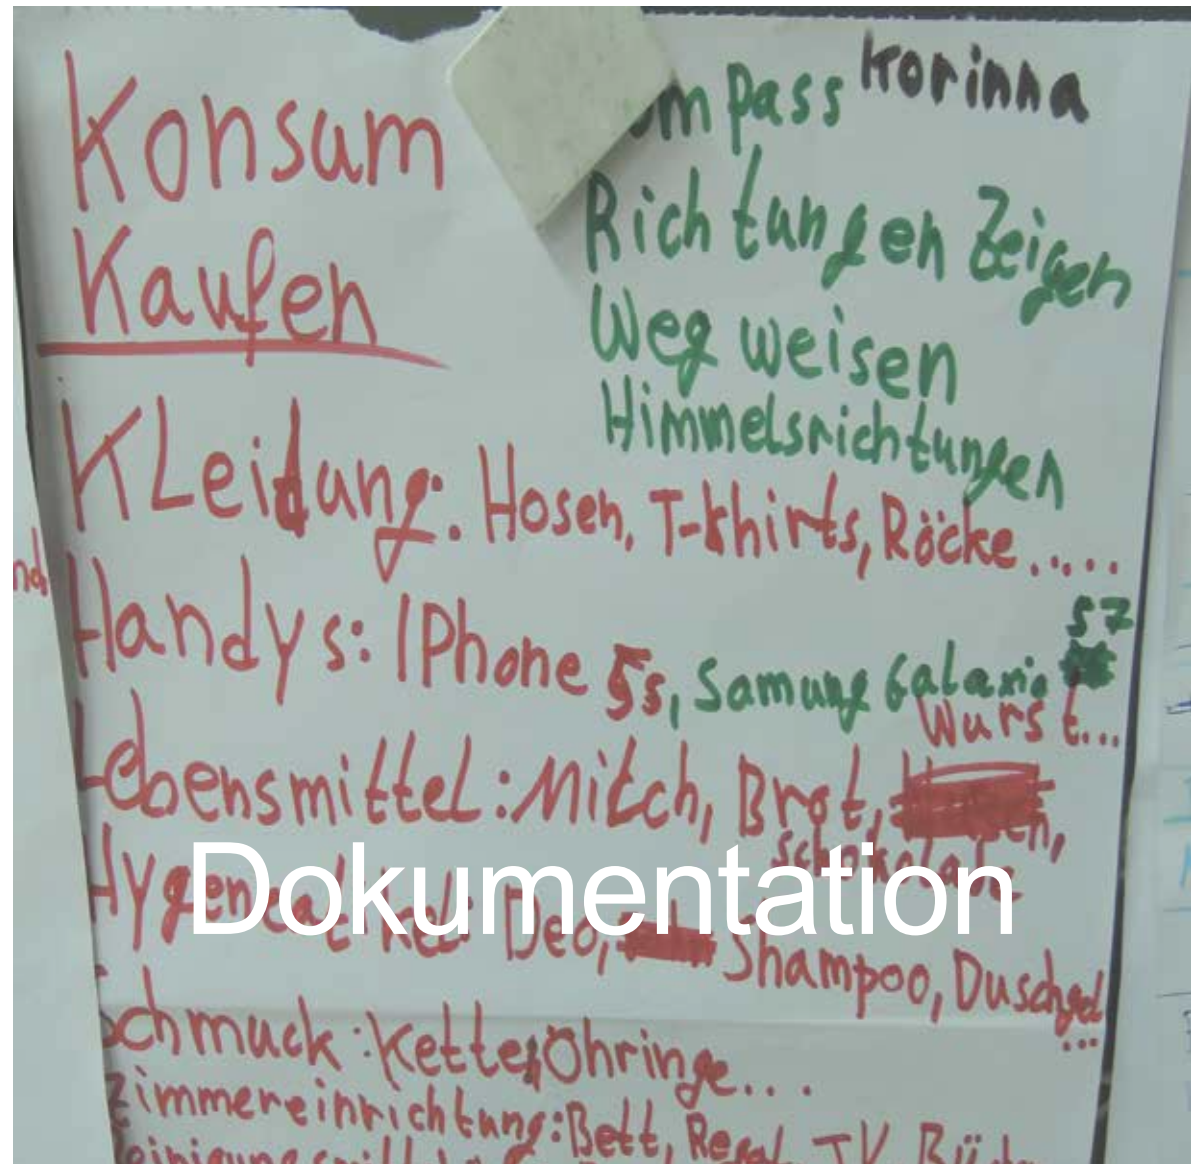 Konsum
Kaufen
Kompass Korinna
Richtungen Zeigen
Weg weisen
Himmelsrichtungen
KLeidung: Hosen, T-shirts, Röcke.....
Handys: IPhone 5s, Samung Galaxie S7
Lebensmittel: Milch, Brot, Wurst...
Schokolade
Hygeneartikel: Deo, Shampoo, Duschgel
...
Schmuck: Kette, Ohringe...
Zimmereinrichtung: Bett, Regal, TV,
Dokumentation